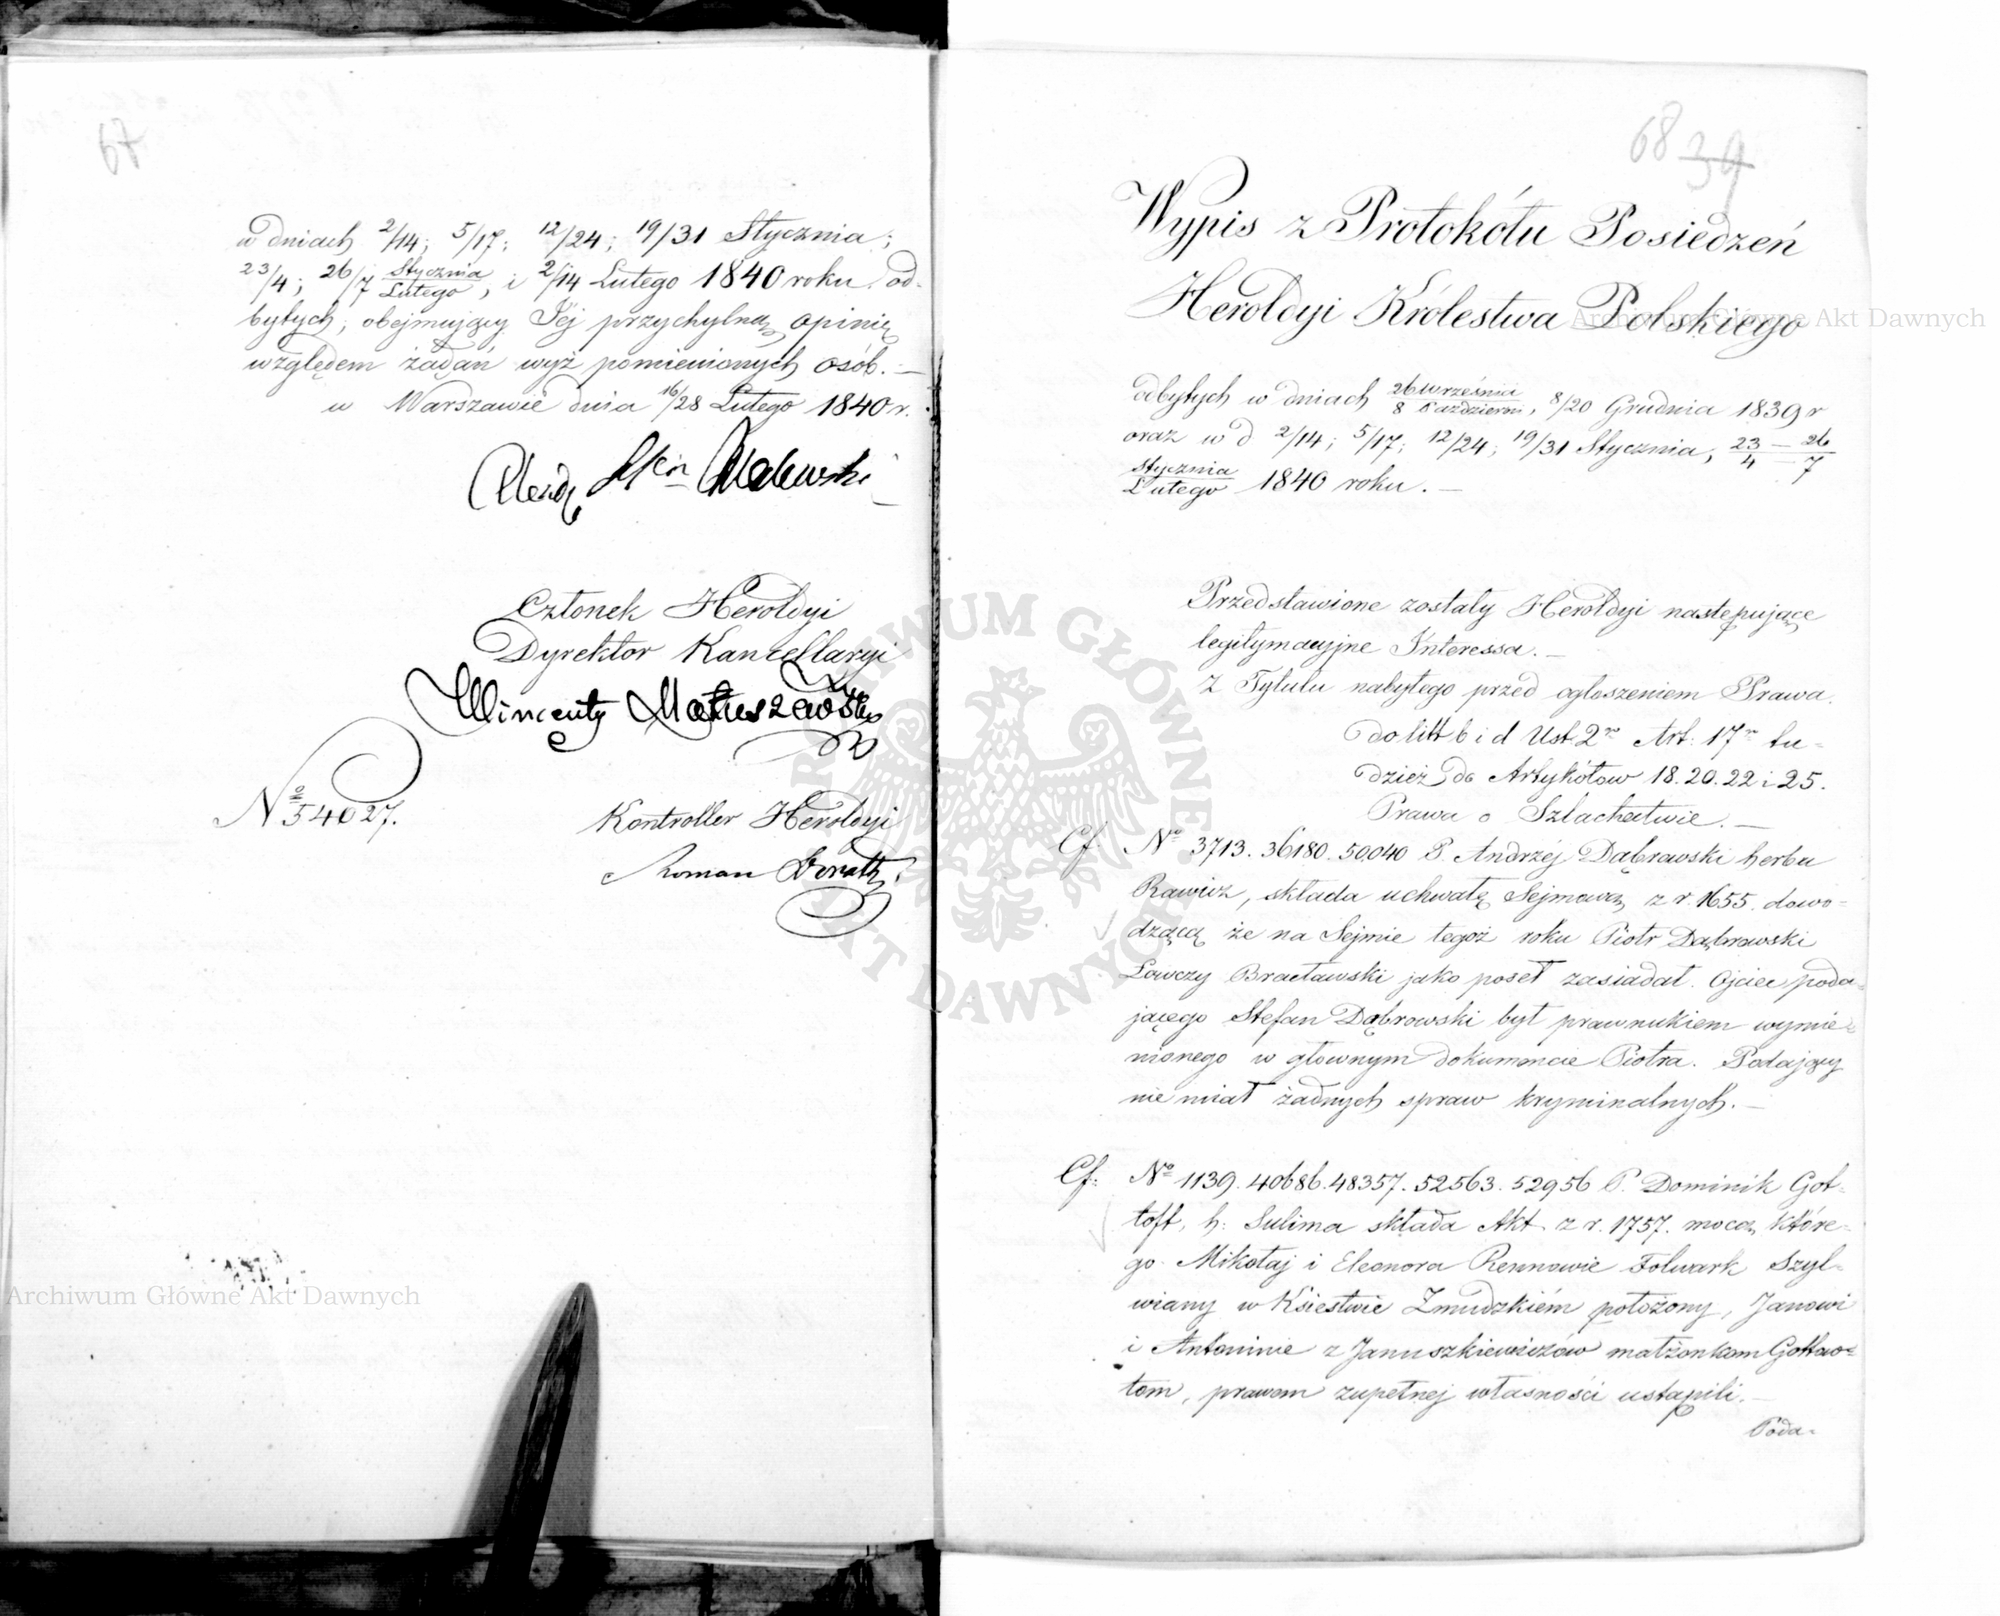 67
w dniach 2/14; 5/17; 12/24; 19/31 Stycznia;
23/4; 26/7 Stycznia/Lutego, i 2/14 Lutego 1840 roku od-
bytych; obejmujący Jej przychylną opinię
względem żądań wyż pomienionych osób. —
w Warszawie dnia 16/28 Lutego 1840 r.
Członek Heroldyi
Dyrektor Kancellaryi
Wincenty Matuszewski
No 54027.
Kontroller Heroldyi
Roman
68 39
Wypis z Protokółu Posiedzeń
Heroldyi Królestwa Polskiego
odbytych w dniach 26 września/8 Październi, 8/20 Grudnia 1839 r
oraz w d 2/14; 5/17; 12/24; 19/31 Stycznia, 23/4 — 26/7
Stycznia/Lutego 1840 roku. —
Przedstawione zostały Heroldyi następujące
legitymacyjne Interessa. —
Z Tytułu nabytego przed ogłoszeniem Prawa.
do litt b i d Ust. 2go Art: 17go tu-
dzież do Artykółow 18. 20. 22 i 25.
Prawa o Szlachectwie. —
Cf. No 3713. 36180. 50040 P. Andrzéj Dąbrowski herbu
Rawicz, składa uchwałę Sejmową z r. 1655. dowo-
dzącą że na Sejmie tegoż roku Piotr Dąbrowski
Łowczy Bracławski jako poseł zasiadał. Ojciec poda-
jącego Stefan Dąbrowski był prawnukiem wymie-
nionego w głownym dokumencie Piotra. Podający
nie miał żadnych spraw kryminalnych. —
Cf: No 1139. 40686. 48357. 52563. 52956 P. Dominik Got-
toft, h: Sulima składa Akt z r. 1757. mocą które-
go Mikołaj i Eleonora Rennowie Folwark Szyl-
wiany w Księstwie Żmudzkiém położony, Janowi
i Antoninie z Januszkiewiczów małżonkom Gottow-
tom, prawem zupełnej własności ustąpili. —
Poda-
Archiwum Główne Akt Dawnych
Archiwum Główne Akt Dawnych
ARCHIWUM GŁÓWNE AKT DAWNYCH